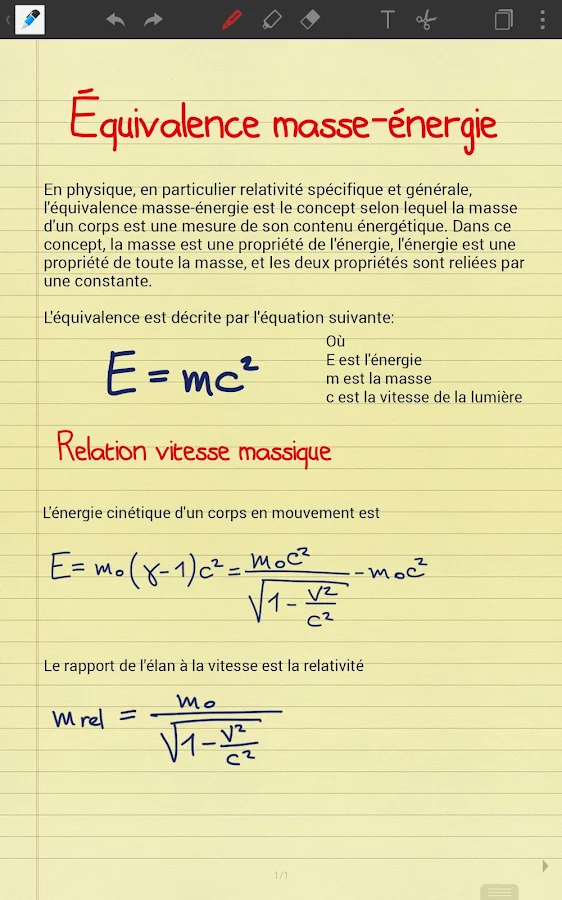 T
Équivalence masse-énergie
En physique, en particulier relativité spécifique et générale,
l'équivalence masse-énergie est le concept selon lequel la masse
d'un corps est une mesure de son contenu énergétique. Dans ce
concept, la masse est une propriété de l'énergie, l'énergie est une
propriété de toute la masse, et les deux propriétés sont reliées par
une constante.
L'équivalence est décrite par l'équation suivante:
E = mc²
Où
E est l'énergie
m est la masse
c est la vitesse de la lumière
Relation vitesse massique
L'énergie cinétique d'un corps en mouvement est
E = m₀(γ-1)c² = m₀c² / √(1 - v²/c²) - m₀c²
Le rapport de l'élan à la vitesse est la relativité
m rel = m₀ / √(1 - v²/c²)
1/1